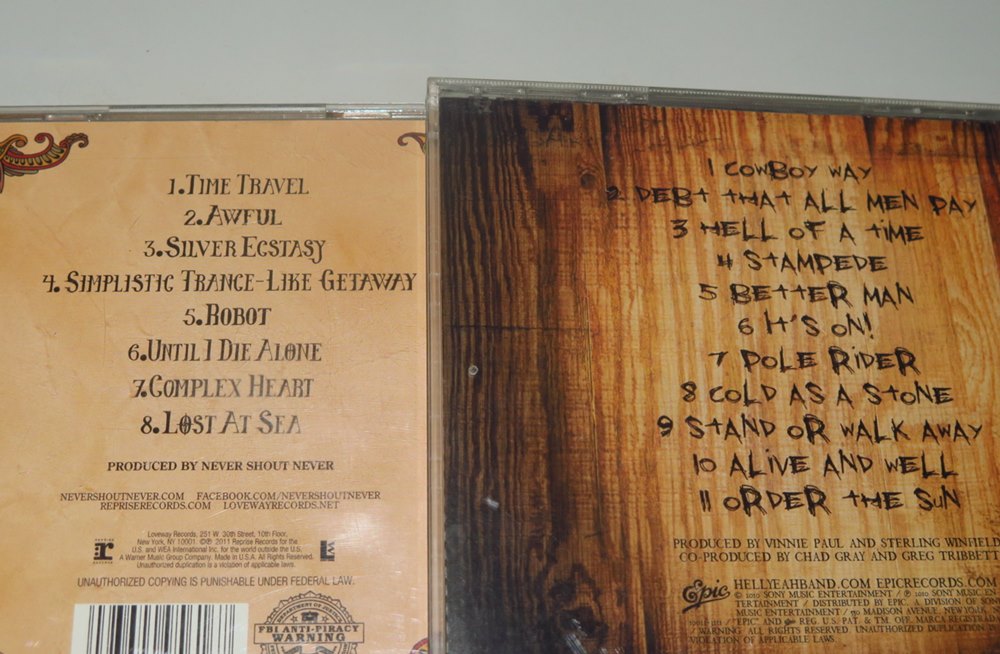 1.Time Travel
2.Awful
3.Silver Ecstasy
4.Simplistic Trance-Like Getaway
5.Robot
6.Until I Die Alone
7.Complex Heart
8.Lost At Sea
PRODUCED BY NEVER SHOUT NEVER
NEVERSHOUTNEVER.COM FACEBOOK.COM/NEVERSHOUTNEVER
REPRISERECORDS.COM LOVEWAYRECORDS.NET
REPRISE
r
Loveway Records, 251 W. 30th Street, 10th Floor,
New York, NY 10001. ©℗ 2011 Reprise Records for the
U.S. and WEA International Inc. for the world outside the U.S.
A Warner Music Group Company. Made in U.S.A. All Rights Reserved.
Unauthorized duplication is a violation of applicable laws.
UNAUTHORIZED COPYING IS PUNISHABLE UNDER FEDERAL LAW.
DEPARTMENT OF JUSTICE
FBI ANTI-PIRACY
WARNING
1 COWBOY WAY
2 DEBT THAT ALL MEN PAY
3 HELL OF A TIME
4 STAMPEDE
5 BETTER MAN
6 IT'S ON!
7 POLE RIDER
8 COLD AS A STONE
9 STAND OR WALK AWAY
10 ALIVE AND WELL
11 ORDER THE SUN
PRODUCED BY VINNIE PAUL AND STERLING WINFIELD
CO-PRODUCED BY CHAD GRAY AND GREG TRIBBETT
Epic HELLYEAHBAND.COM EPICRECORDS.COM
© 2010 SONY MUSIC ENTERTAINMENT / ℗ 2010 SONY MUSIC EN-
TERTAINMENT / DISTRIBUTED BY EPIC, A DIVISION OF SONY
MUSIC ENTERTAINMENT / 550 MADISON AVENUE, NEW YORK,
"EPIC" AND REG. U.S. PAT. & TM. OFF. MARCA REGISTRADA
/ WARNING: ALL RIGHTS RESERVED. UNAUTHORIZED DUPLICATION
VIOLATION OF APPLICABLE LAWS.